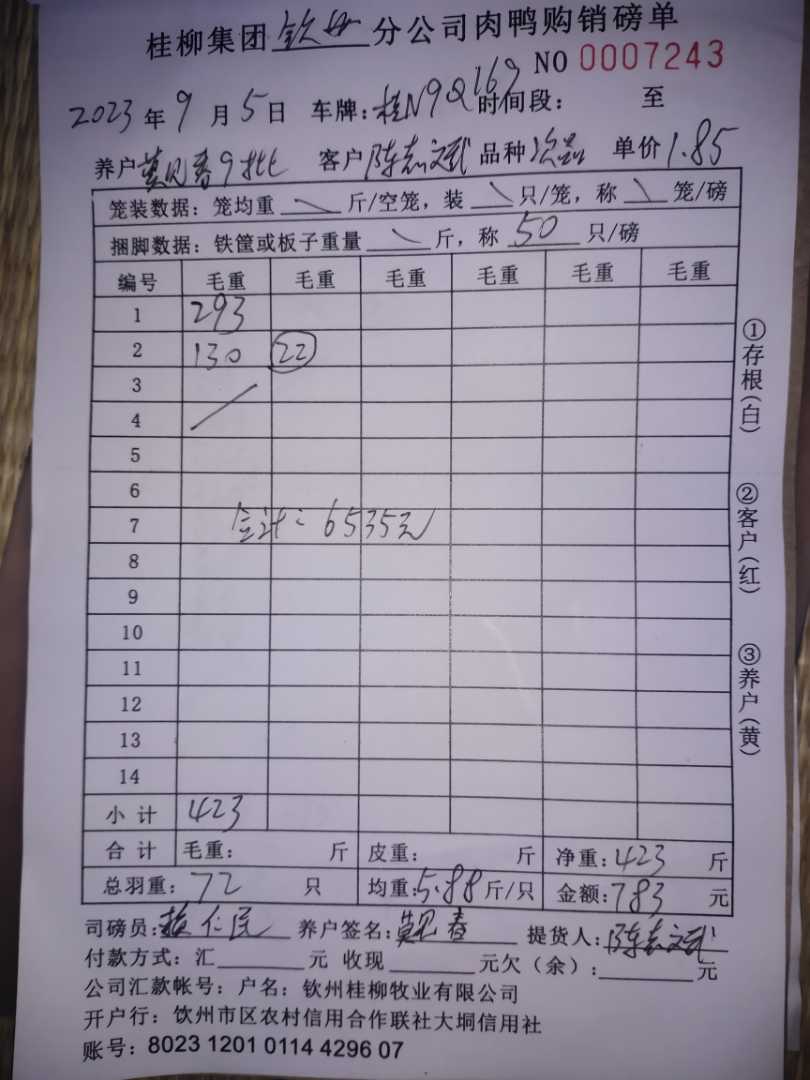 桂柳集团钦州分公司肉鸭购销磅单
NO 0007243
2023年9月5日 车牌:桂N9Q169 时间段: 至
养户莫见春9批 客户陈志文武 品种次品 单价1.85
笼装数据: 笼均重 斤/空笼, 装 只/笼, 称 笼/磅
捆脚数据: 铁筐或板子重量 斤, 称 50 只/磅
编号 毛重 毛重 毛重 毛重 毛重 毛重
1 293
2 130 22
3
4
5
6
7 合计: 6535元
8
9
10
11
12
13
14
小计 423
合计 毛重: 斤 皮重: 斤 净重:423 斤
总羽重: 72 只 均重:5.88斤/只 金额:783 元
司磅员: 仁民 养户签名:莫见春 提货人:陈志文武
付款方式: 汇 元 收现 元欠(余): 元
公司汇款帐号: 户名: 钦州桂柳牧业有限公司
开户行: 钦州市区农村信用合作联社大垌信用社
账号: 8023 1201 0114 4296 07
①存根(白)
②客户(红)
③养户(黄)